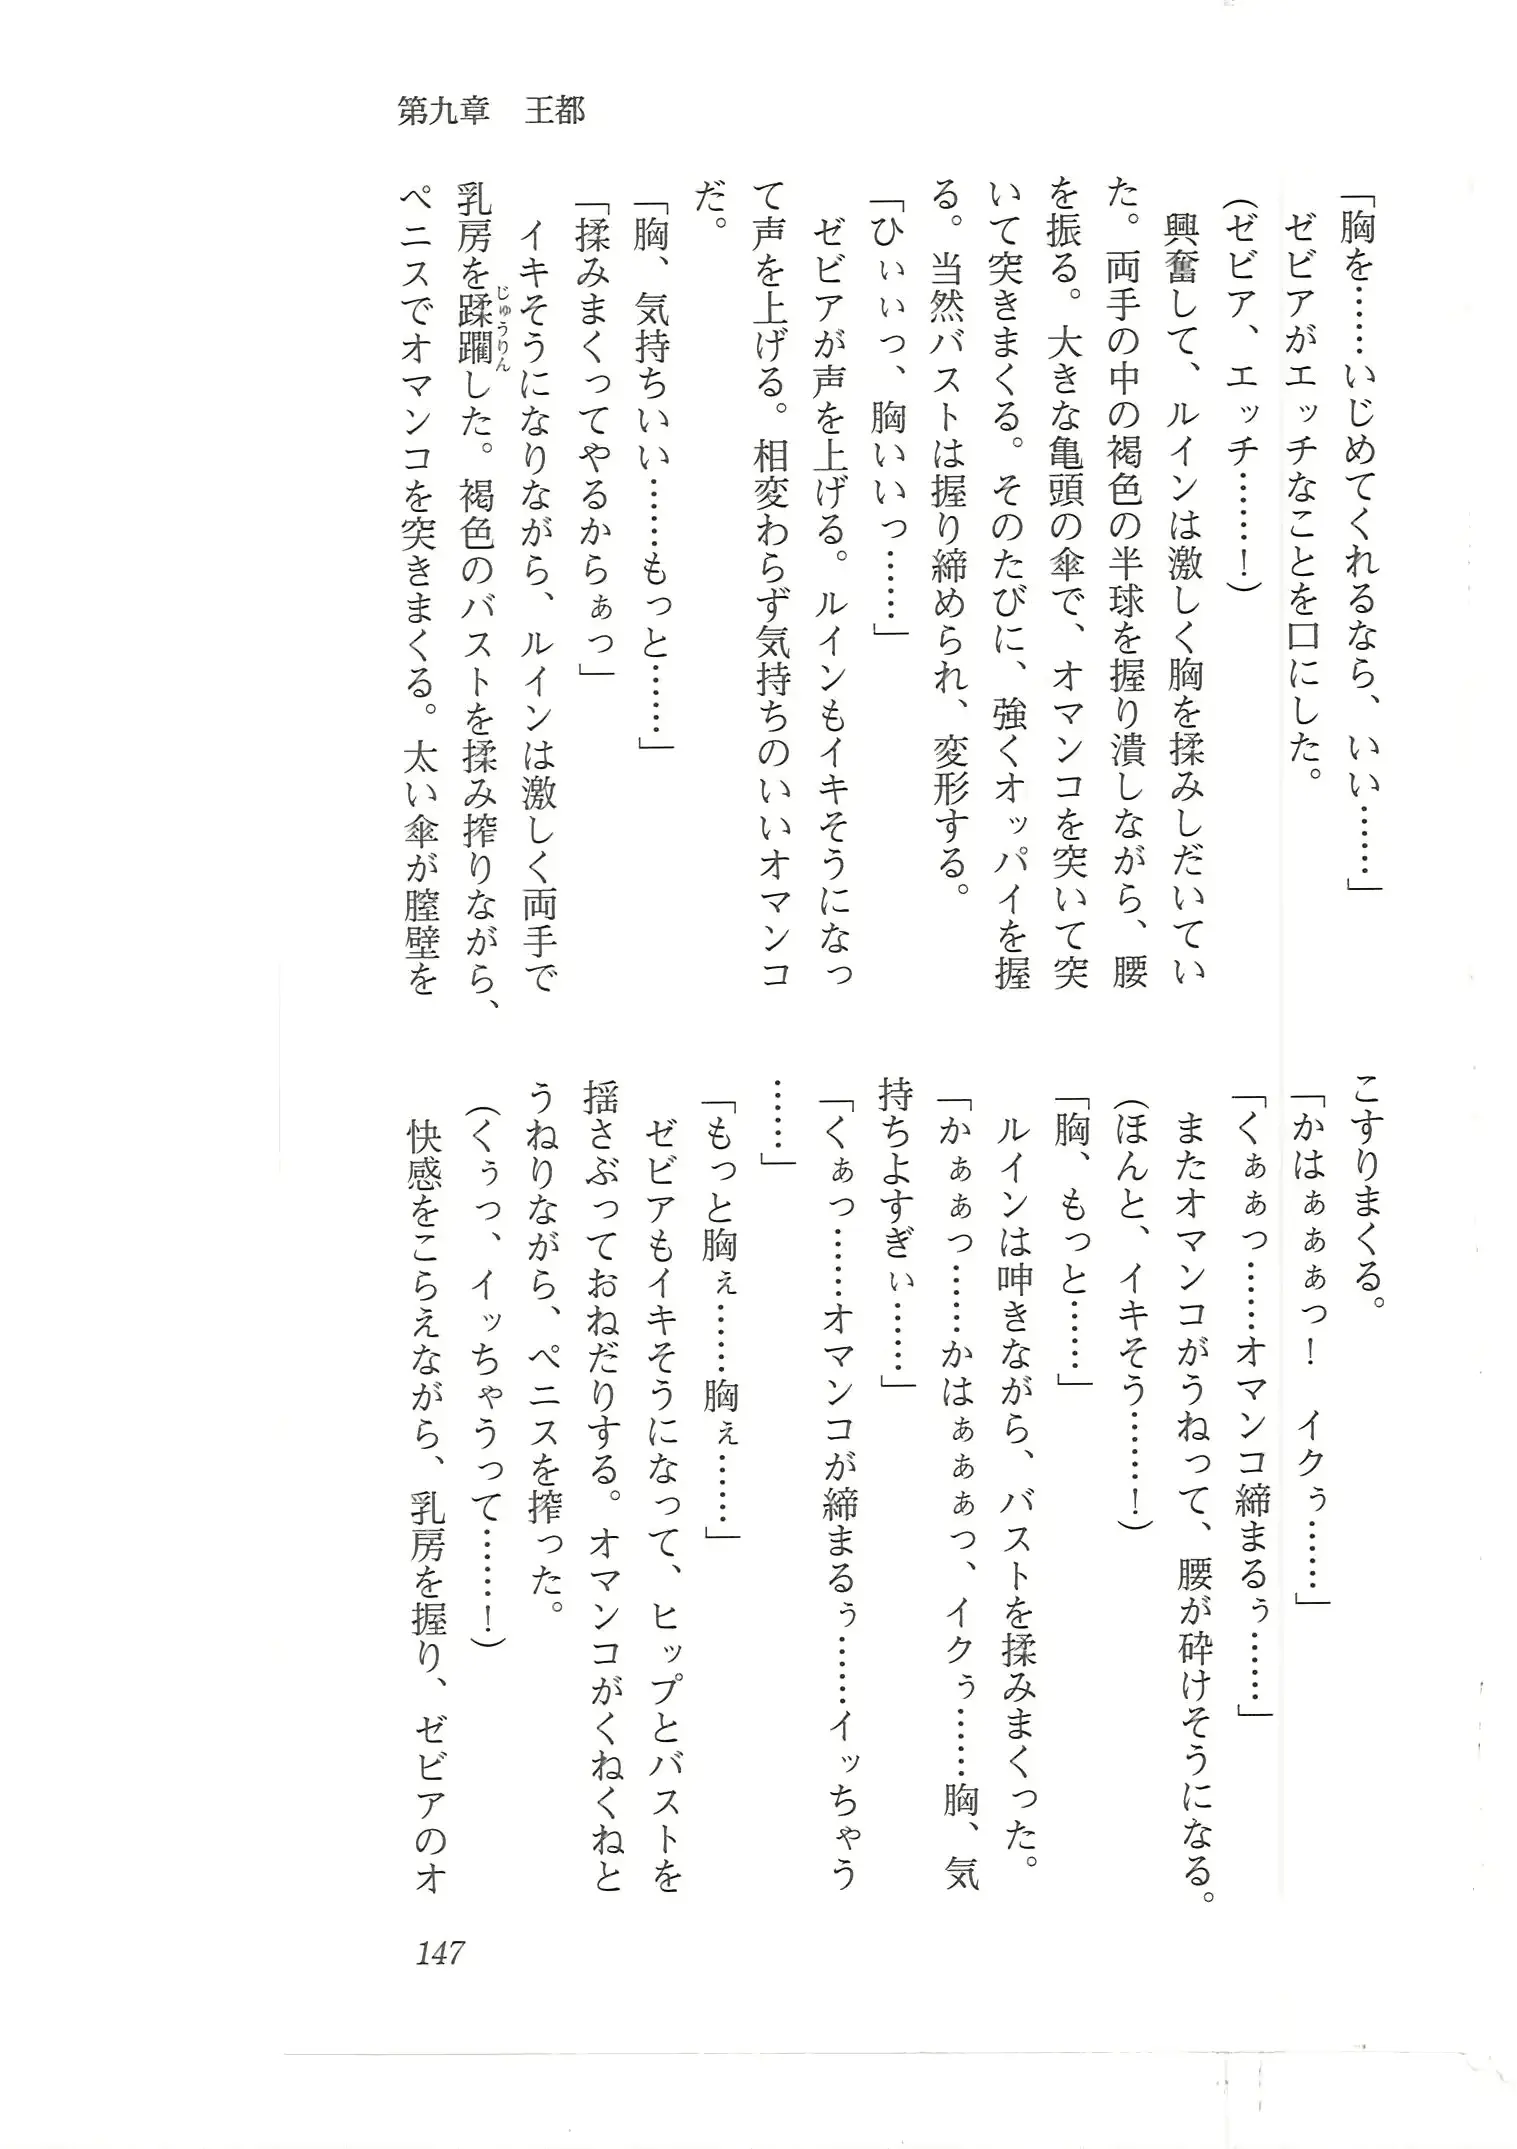 第九章　王都
「胸を……いじめてくれるなら、いい……」
　ゼビアがエッチなことを口にした。
（ゼビア、エッチ……！）
　興奮して、ルインは激しく胸を揉みしだいてい
た。両手の中の褐色の半球を握り潰しながら、腰
を振る。大きな亀頭の傘で、オマンコを突いて突
いて突きまくる。そのたびに、強くオッパイを握
る。当然バストは握り締められ、変形する。
「ひぃぃっ、胸いいっ……」
　ゼビアが声を上げる。ルインもイキそうになっ
て声を上げる。相変わらず気持ちのいいオマンコ
だ。
「胸、気持ちいい……もっと……」
「揉みまくってやるからぁっ」
　イキそうになりながら、ルインは激しく両手で
乳房を蹂躙じゅうりんした。褐色のバストを揉み搾りながら、
ペニスでオマンコを突きまくる。太い傘が膣壁を
こすりまくる。
「かはぁぁぁっ！　イクぅ……」
「くぁぁっ……オマンコ締まるぅ……」
　またオマンコがうねって、腰が砕けそうになる。
（ほんと、イキそう……！）
「胸、もっと……」
　ルインは呻きながら、バストを揉みまくった。
「かぁぁっ……かはぁぁぁっ、イクぅ……胸、気
持ちよすぎぃ……」
「くぁっ……オマンコが締まるぅ……イッちゃう
……」
「もっと胸ぇ……胸ぇ……」
　ゼビアもイキそうになって、ヒップとバストを
揺さぶっておねだりする。オマンコがくねくねと
うねりながら、ペニスを搾った。
（くぅっ、イッちゃうって……！）
　快感をこらえながら、乳房を握り、ゼビアのオ
147